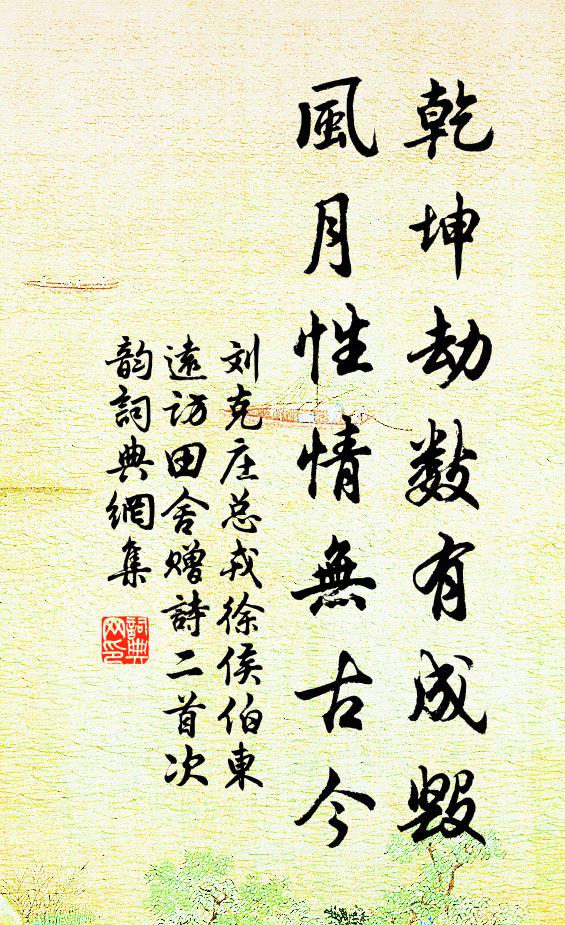 乾坤劫数有成毀
風月性情無古今
刘克庄总戎徐侯伯東
遠访田舍赠詩二首次
韵詞典網集
詞典
网印